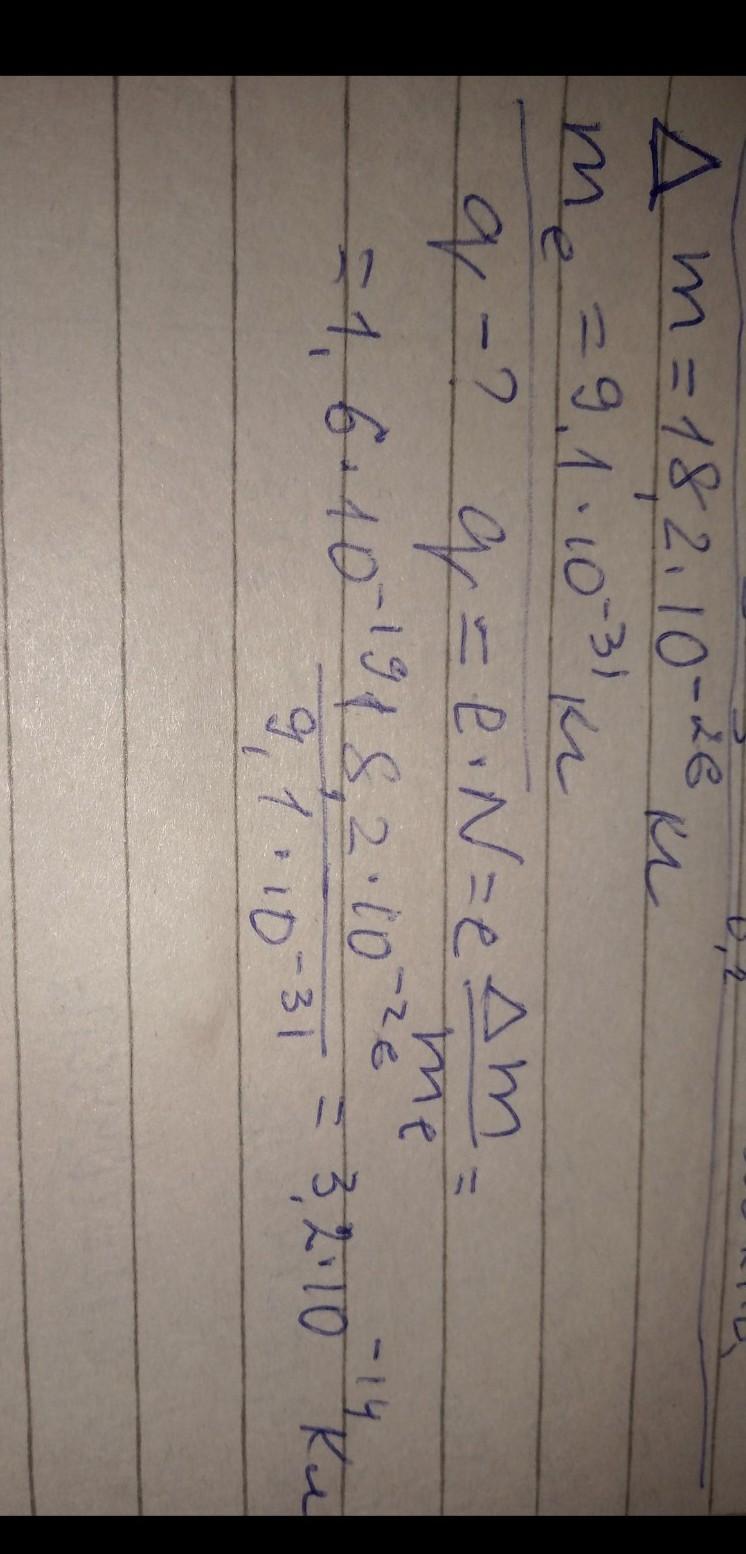 Δ m = 18,2 · 10⁻²⁶ кг
mₑ = 9,1 · 10⁻³¹ кг
q – ? q = e · N = e Δm/mₑ =
= 1,6 · 10⁻¹⁹ 18,2 · 10⁻²⁶ / 9,1 · 10⁻³¹ = 3,2 · 10⁻¹⁴ Кл